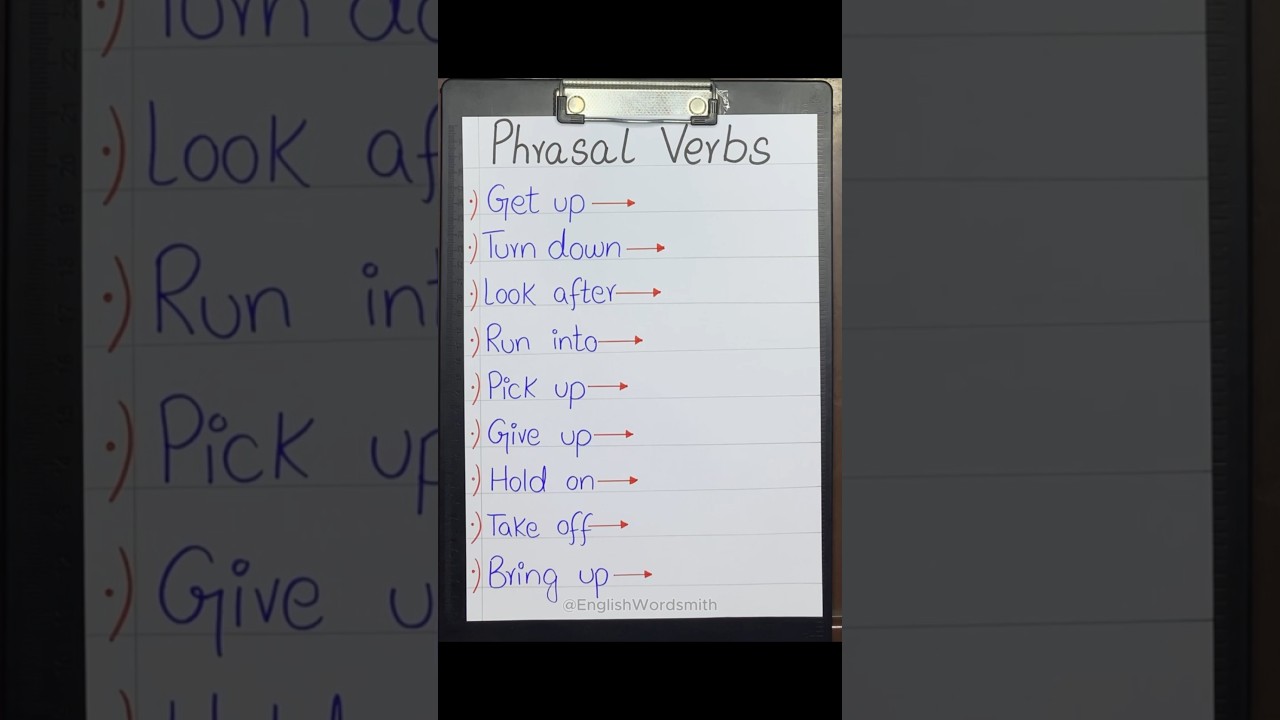 Phrasal Verbs
·) Get up →
·) Turn down →
·) Look after →
·) Run into →
·) Pick up →
·) Give up →
·) Hold on →
·) Take off →
·) Bring up →
@EnglishWordsmith